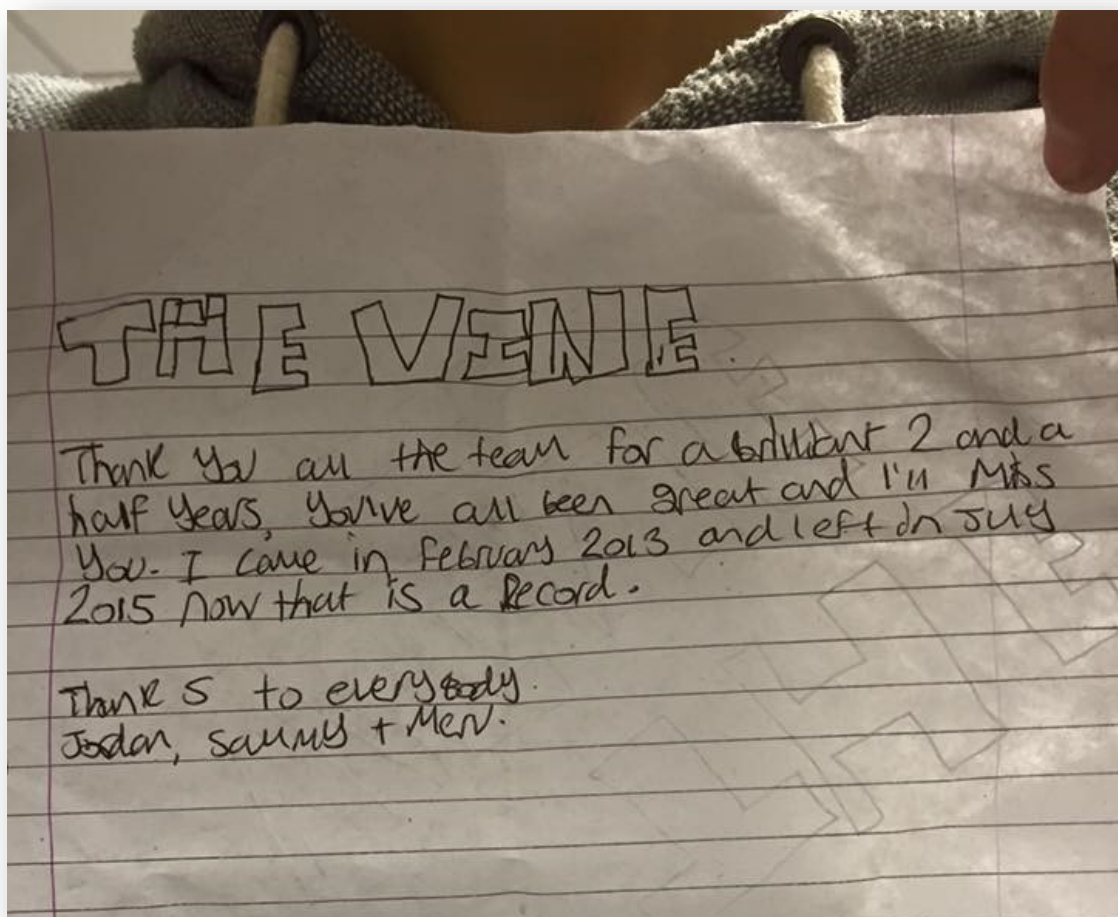 THE VINE.
Thank you all the team for a brilliant 2 and a
half years, You've all been great and I'll Miss
You. I came in February 2013 and left in July
2015 now that is a Record.
Thank S to everybody.
Jordan, Sammy + Merv.